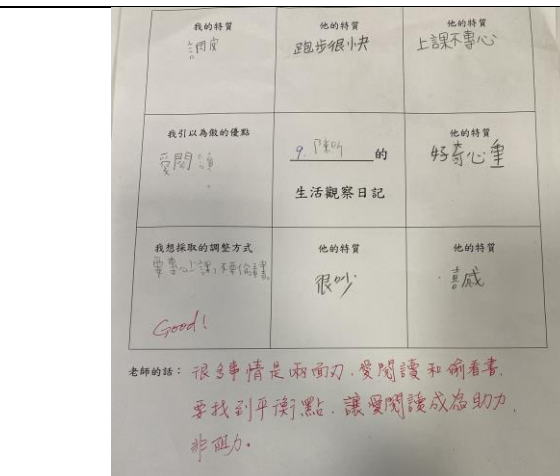 我的特質
調皮
他的特質
跑步很快
他的特質
上課不專心
我引以為傲的優點
愛閱讀
9. 的
生活觀察日記
他的特質
好奇心重
我想採取的調整方式
要專心上課,不要偷看書。
Good!
他的特質
很吵
他的特質
老師的話:很多事情是兩面刃,愛閱讀和偷看書,
要找到平衡點,讓愛閱讀成為助力,
非阻力。